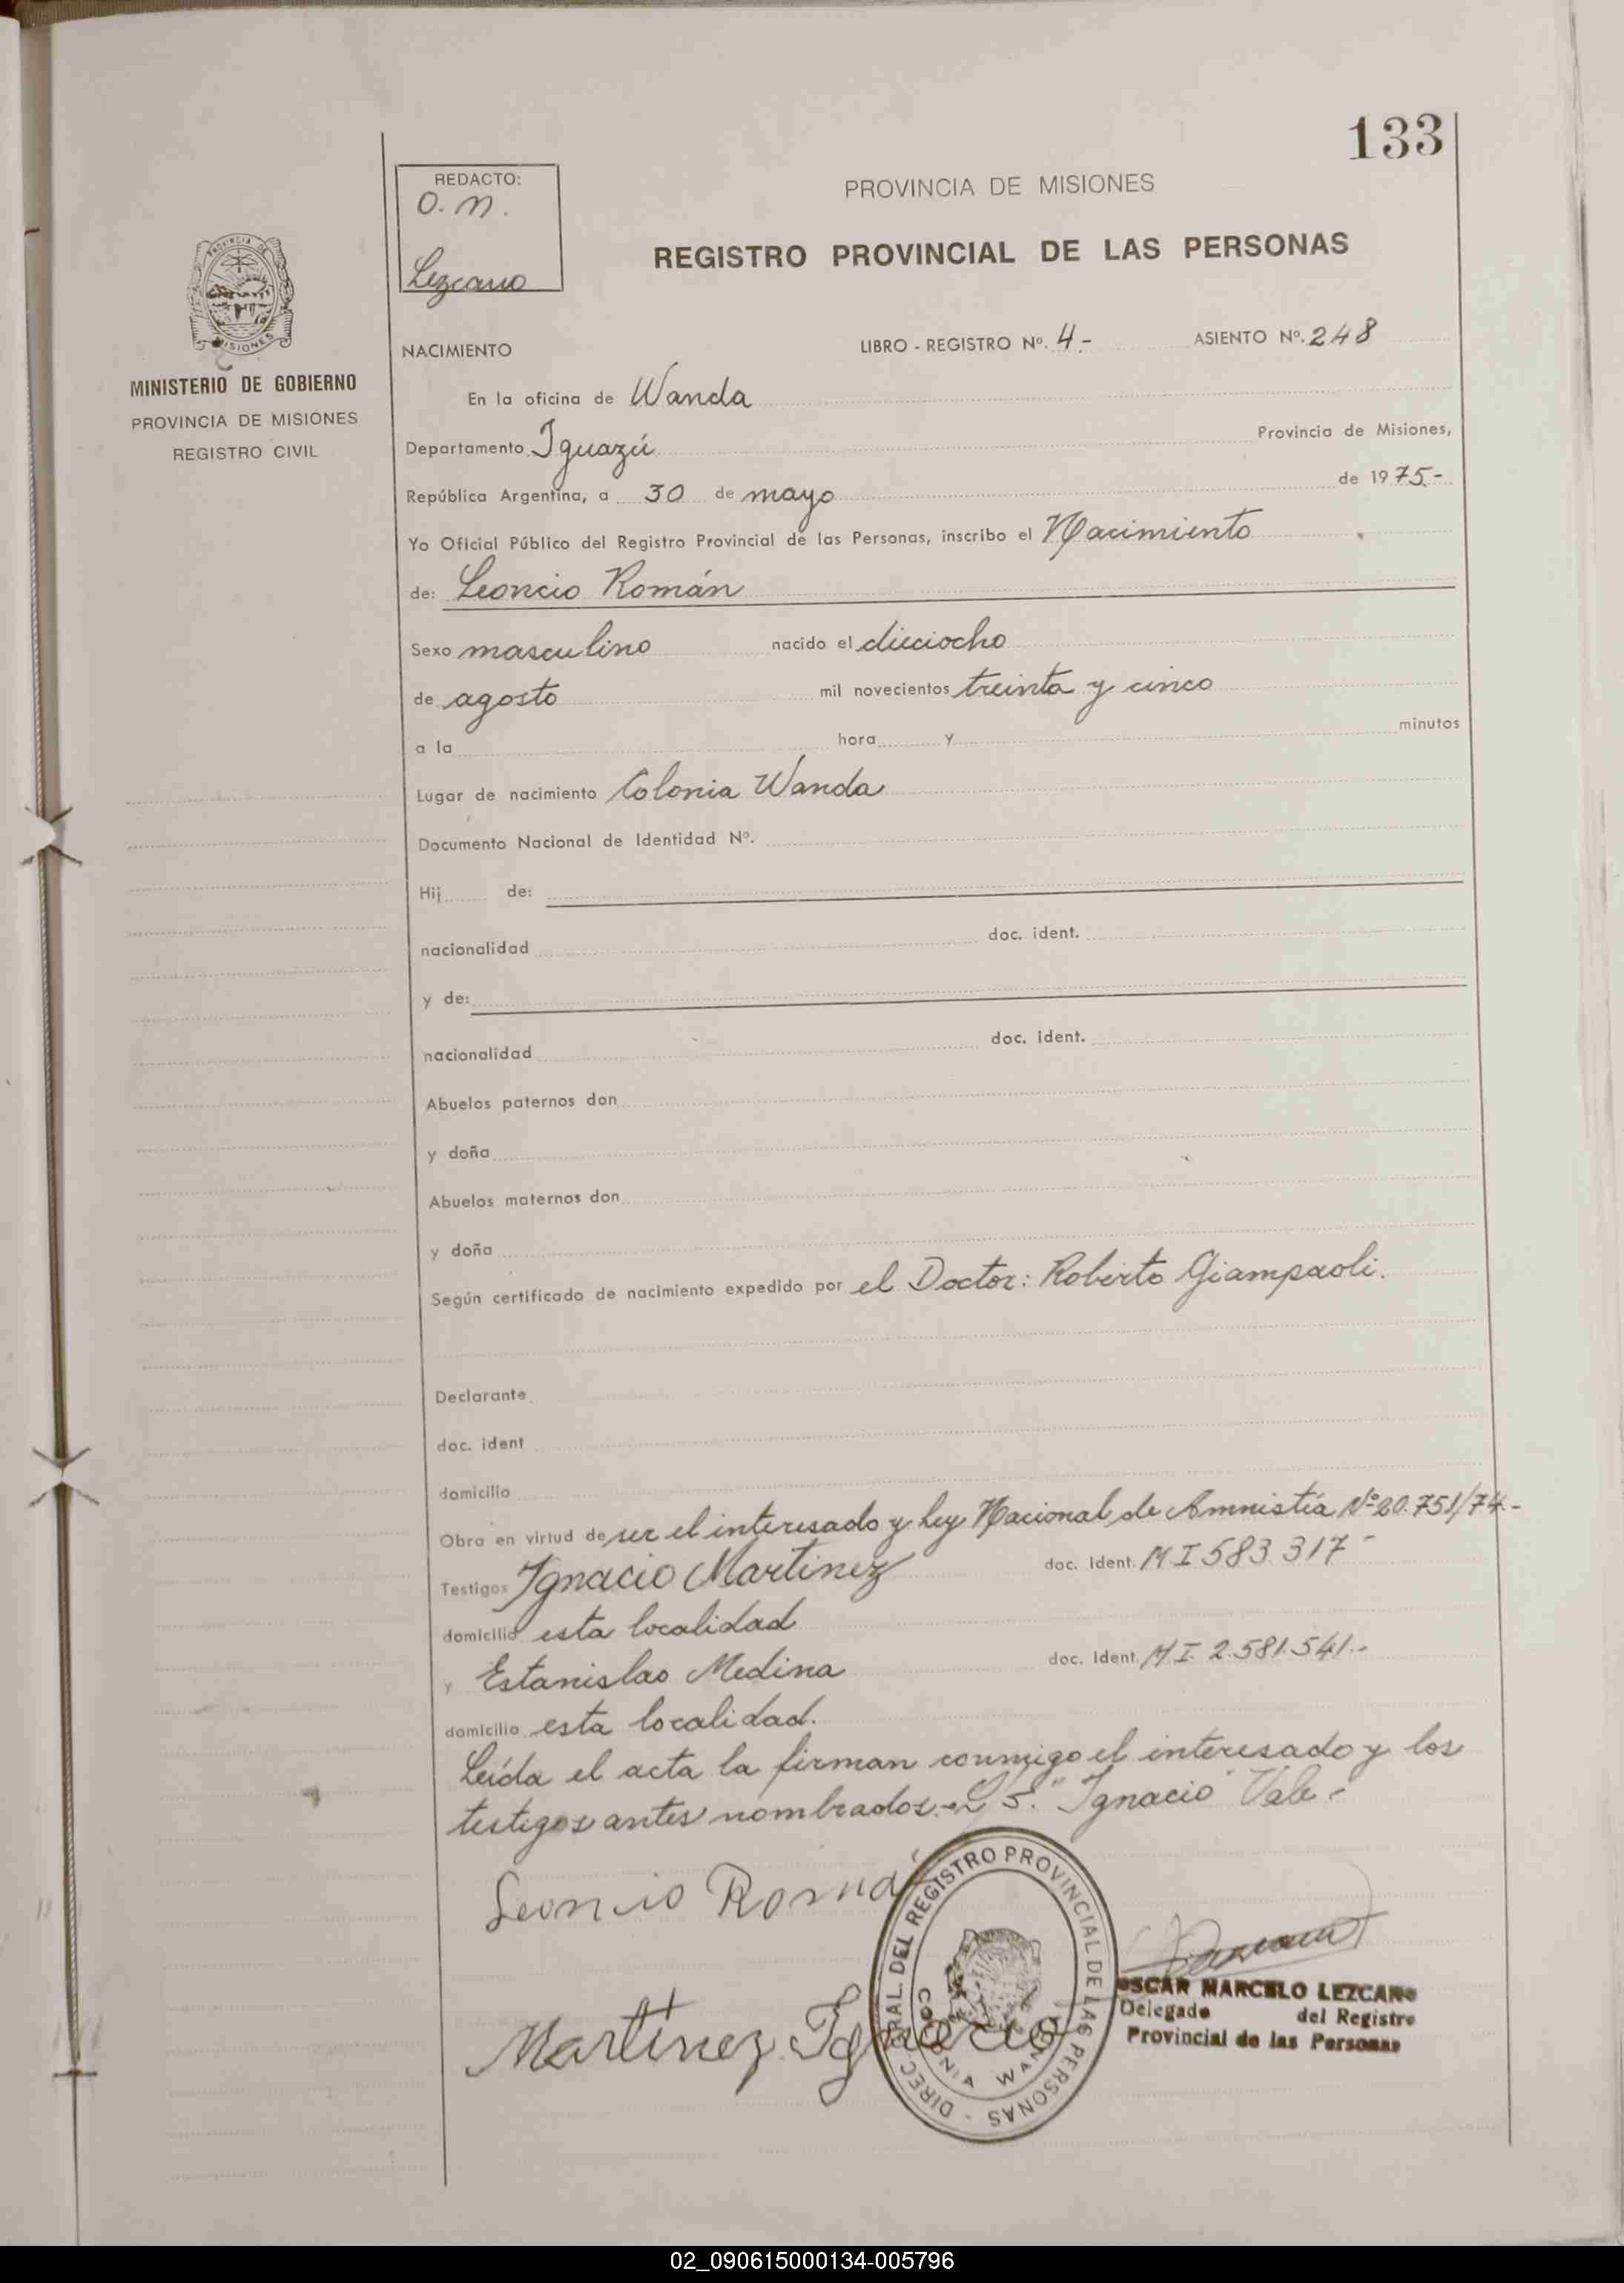 133
REDACTO:
O. M.
Lezcano
PROVINCIA DE MISIONES
REGISTRO PROVINCIAL DE LAS PERSONAS
MISIONES
MINISTERIO DE GOBIERNO
PROVINCIA DE MISIONES
REGISTRO CIVIL
NACIMIENTO LIBRO - REGISTRO Nº. 4- ASIENTO Nº. 248
En la oficina de Wanda
Departamento Iguazú Provincia de Misiones,
República Argentina, a 30 de mayo de 1975-
Yo Oficial Público del Registro Provincial de las Personas, inscribo el Nacimiento
de: Leoncio Román
Sexo masculino nacido el dieciocho
de agosto mil novecientos treinta y cinco
a la hora y minutos
Lugar de nacimiento Colonia Wanda
Documento Nacional de Identidad Nº.
Hij de:
nacionalidad doc. ident.
y de:
nacionalidad doc. ident.
Abuelos paternos don
y doña
Abuelos maternos don
y doña
Según certificado de nacimiento expedido por el Doctor: Roberto Giampaoli.
Declarante
doc. ident
domicilio
Obra en virtud de ser el interesado y Ley Nacional de Amnistía Nº 20.751/74.-
Testigos Ignacio Martinez doc. Ident. M I 583.317-
domicilio esta localidad
y Estanislao Medina doc. Ident. M I. 2.581.541.-
domicilio esta localidad.
Leída el acta la firman conmigo el interesado y los
testigos antes nombrados.- "Ignacio" Vale.-
Leoncio Román
DIREC. GRAL. DEL REGISTRO PROVINCIAL DE LAS PERSONAS -
COLONIA WANDA
OSCAR MARCELO LEZCANO
Delegado del Registro
Provincial de las Personas
Martínez Ignacio
02_090615000134-005796